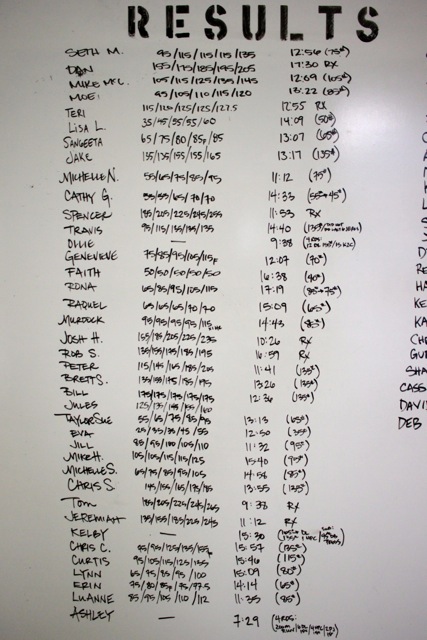 RESULTS
SETH M. 95/115/115/115/135 12:56 (75#)
DAN 155/175/185/195/205 17:30 RX
MIKE MC. 105/115/125/135/145 12:09 (105#)
MOE! 95/105/110/115/120 13:22 (85#)
TERI 115/110/125/125/127.5 12:55 RX
LISA L. 35/45/55/55/60 14:09 (50#)
SANGEETA 65/75/80/85F/85 13:07 (65#)
JAKE 135/135/155/155/165 13:17 (135#)
MICHELLE N. 55/65/75/85/95 11:12 (75#)
CATHY G. 55/55/65/70/70 14:33
SPENCER 185/205/225/245/255 11:53 RX
TRAVIS 95/115/135/135/135 14:40
OLLIE — 9:38
GENEVIEVE 75/85/95/105/115F 12:07 (70#)
FAITH 50/50/50/50/50 16:38 (40#)
RONA 65/85/95/105/115 17:19 (85#→75#)
RAQUEL 65/65/65/70/70 15:09 (65#)
MURDOCK 95/95/95/95/115 14:43 (85#)
JOSH H. 155/185/205/225/235 10:26 RX
ROB S. 135/155/175/185/195 16:59 RX
PETER 115/145/165/185/205 11:41 (135#)
BRETT S. 135/155/175/185/195 13:26 (135#)
BILL 175/175/175/175/175 12:36 (135#)
JULES 125/135/145/155/160
TAYLOR SUE 55/65/75/85/95 13:13 (65#)
EVA 25/35/35/45/55 12:50 (35#)
JILL 85/95/100/105/110 11:32 (95#)
MIKE H. 105/105/115/115/125 15:40 (95#)
MICHELLE S. 65/75/85/95/105 14:56 (85#)
CHRIS S. 145/155/165/175/185 13:55 (135#)
TOM 185/205/225/245/265 9:38 RX
JEREMIAH 135/155/185/225/245 11:12 RX
KELBY — 15:30
CHRIS C. 85/95/125/135/155F 15:57 (135#)
CURTIS 95/105/115/125/135 15:46 (115#)
LYNN 65/75/85/95/100 15:09 (80#)
ERIN 75/80/85F/75/97.5 14:14 (65#)
LUANNE 85/95/105/110/112 11:35 (85#)
ASHLEY — 7:29
CASS
DAVI
DEB